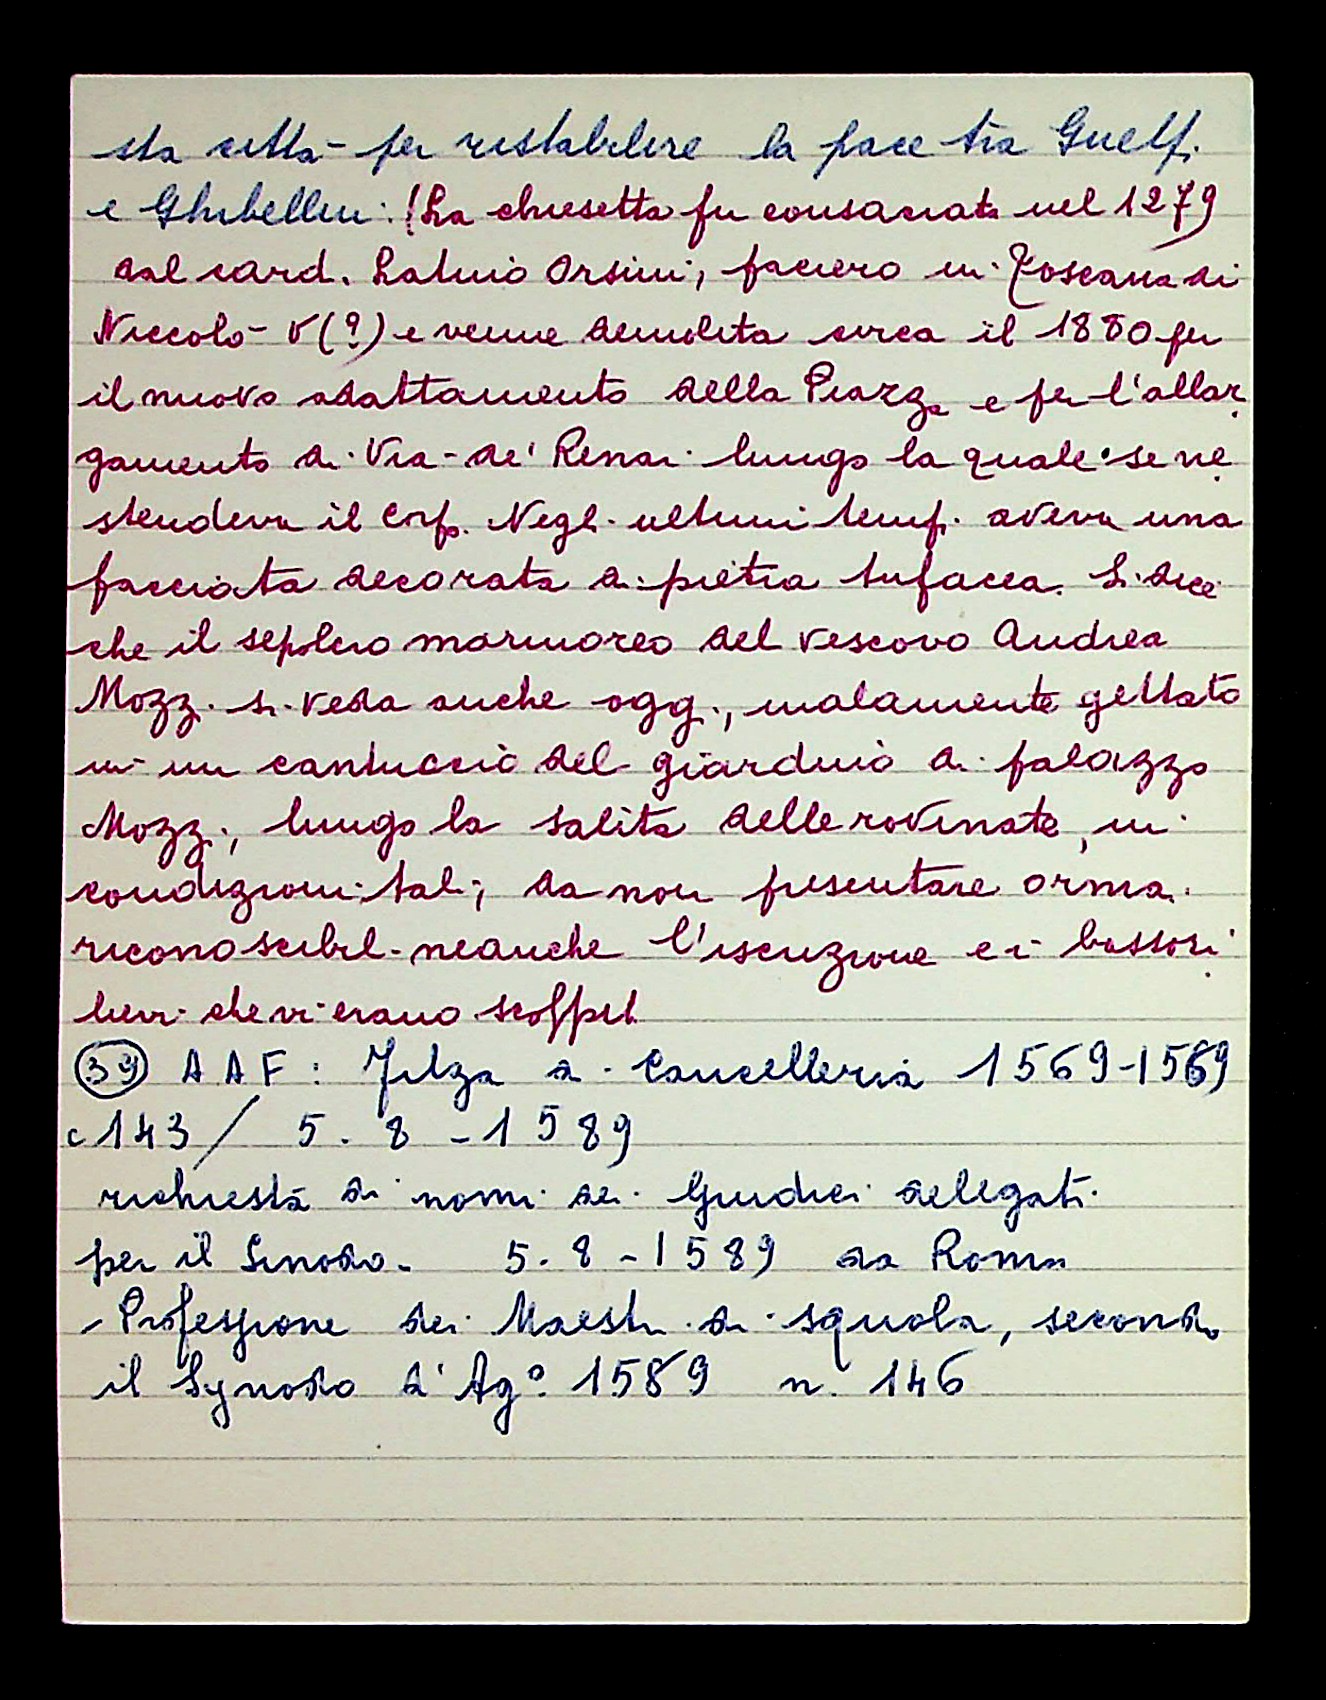 sta città per ristabilire la pace tra Guelfi
e Ghibellini. (La chiesetta fu consacrata nel 1279
dal card. Latino Orsini, paciero in Toscana di
Niccolò V(?) e venne demolita circa il 1880 per
il nuovo adattamento della Piazza e per l'allar
gamento di Via de' Renai lungo la quale se ne
stendeva il corpo. Negli ultimi tempi aveva una
facciata decorata di pietra tufacea. Si dice
che il sepolcro marmoreo del vescovo Andrea
Mozzi si veda anche oggi, malamente gettato
in un cantuccio del giardino di palazzo
Mozzi, lungo la salita delle rovinate, in
condizioni tali, da non presentare ormai
riconoscibili neanche l'iscrizione e i bassori
lievi che vi erano scolpiti
39 AAF: Filza di Cancelleria 1569-1569
c 143 / 5. 8 - 1589
richiesta di nomi dei Giudici delegati
per il Sinodo. 5. 8 - 1589 da Roma
- Professione dei Maestri di squola, secondo
il Synodo d' Ag° 1589 n. 146